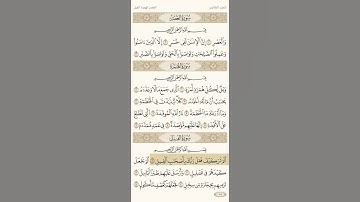 سُورَةُ العَصْرِ
بِسْمِ اللَّهِ الرَّحْمَٰنِ الرَّحِيمِ
وَالْعَصْرِ ۝ إِنَّ الْإِنسَانَ لَفِي خُسْرٍ ۝ إِلَّا الَّذِينَ آمَنُوا
وَعَمِلُوا الصَّالِحَاتِ وَتَوَاصَوْا بِالْحَقِّ وَتَوَاصَوْا بِالصَّبْرِ ۝
سُورَةُ الهُمَزَةِ
بِسْمِ اللَّهِ الرَّحْمَٰنِ الرَّحِيمِ
وَيْلٌ لِّكُلِّ هُمَزَةٍ لُّمَزَةٍ ۝ الَّذِي جَمَعَ مَالًا وَعَدَّدَهُ ۝
يَحْسَبُ أَنَّ مَالَهُ أَخْلَدَهُ ۝ كَلَّا لَيُنبَذَنَّ فِي الْحُطَمَةِ ۝
وَمَا أَدْرَاكَ مَا الْحُطَمَةُ ۝ نَارُ اللَّهِ الْمُوقَدَةُ ۝ الَّتِي تَطَّلِعُ
عَلَى الْأَفْئِدَةِ ۝ إِنَّهَا عَلَيْهِم مُّؤْصَدَةٌ ۝ فِي عَمَدٍ مُّمَدَّدَةٍ ۝
سُورَةُ الفِيلِ
بِسْمِ اللَّهِ الرَّحْمَٰنِ الرَّحِيمِ
أَلَمْ تَرَ كَيْفَ فَعَلَ رَبُّكَ بِأَصْحَابِ الْفِيلِ ۝ أَلَمْ يَجْعَلْ
كَيْدَهُمْ فِي تَضْلِيلٍ ۝ وَأَرْسَلَ عَلَيْهِمْ طَيْرًا أَبَابِيلَ ۝
تَرْمِيهِم بِحِجَارَةٍ مِّن سِجِّيلٍ ۝ فَجَعَلَهُمْ كَعَصْفٍ مَّأْكُولٍ ۝